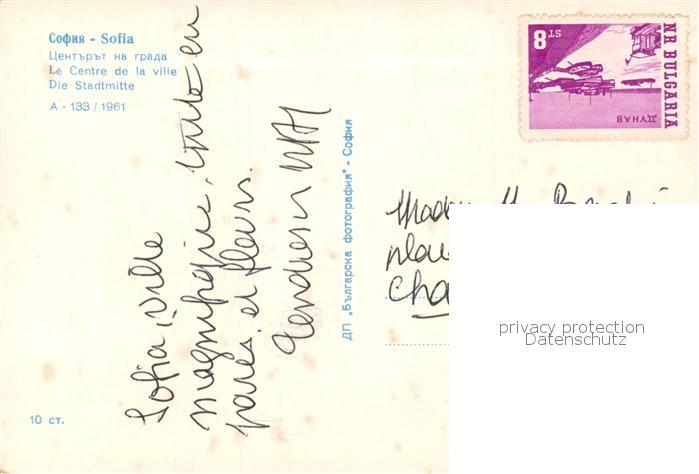 София - Sofia
Центърът на града
Le Centre de la ville
Die Stadtmitte
А - 133 / 1961
10 ст.
Sofia, ville
magnifique, toute en
parcs et fleurs.
Tendresse
ДП „Българска фотография" - София
8 ST
NR BULGARIA
ДУНАВ
M.
Cha
privacy protection
Datenschutz